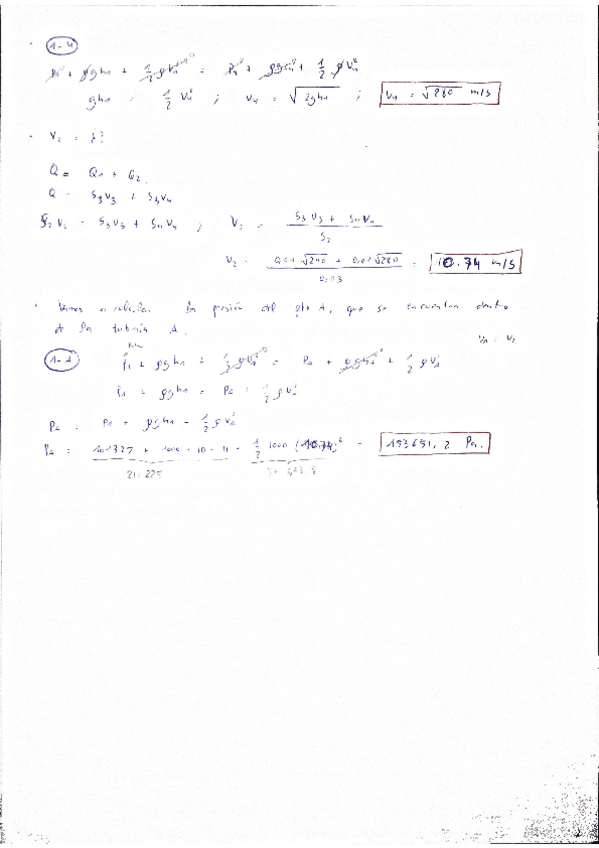 1-4
P1 + ρgh1 + 1/2 ρV1² = P4 + ρgh4 + 1/2 ρV4²
gh1 = 1/2 V4² ; V4 = √2gh1 ; V4 = √280 m/s
V2 = ¿?
Q = Q1 + Q2
Q = S3V3 + S4V4
S2V2 = S3V3 + S4V4 ; V2 = S3V3 + S4V4 / S2
V2 = 0.01√240 + 0,01√280 / 0,03 = 10.74 m/s
Vamos a calcular la presión del pto A, que se encuentra dentro
de la tubería A.
VA = V2
1-A
P1 + ρgh1 + 1/2 ρV1² = PA + ρghA + 1/2 ρVA²
P1 + ρgh1 = PA + 1/2 ρVA²
PA = P1 + ρgh1 - 1/2 ρVA²
PA = 101325 + 1000 · 10 · 11 - 1/2 1000 (10.74)² = 153651,2 Pa.